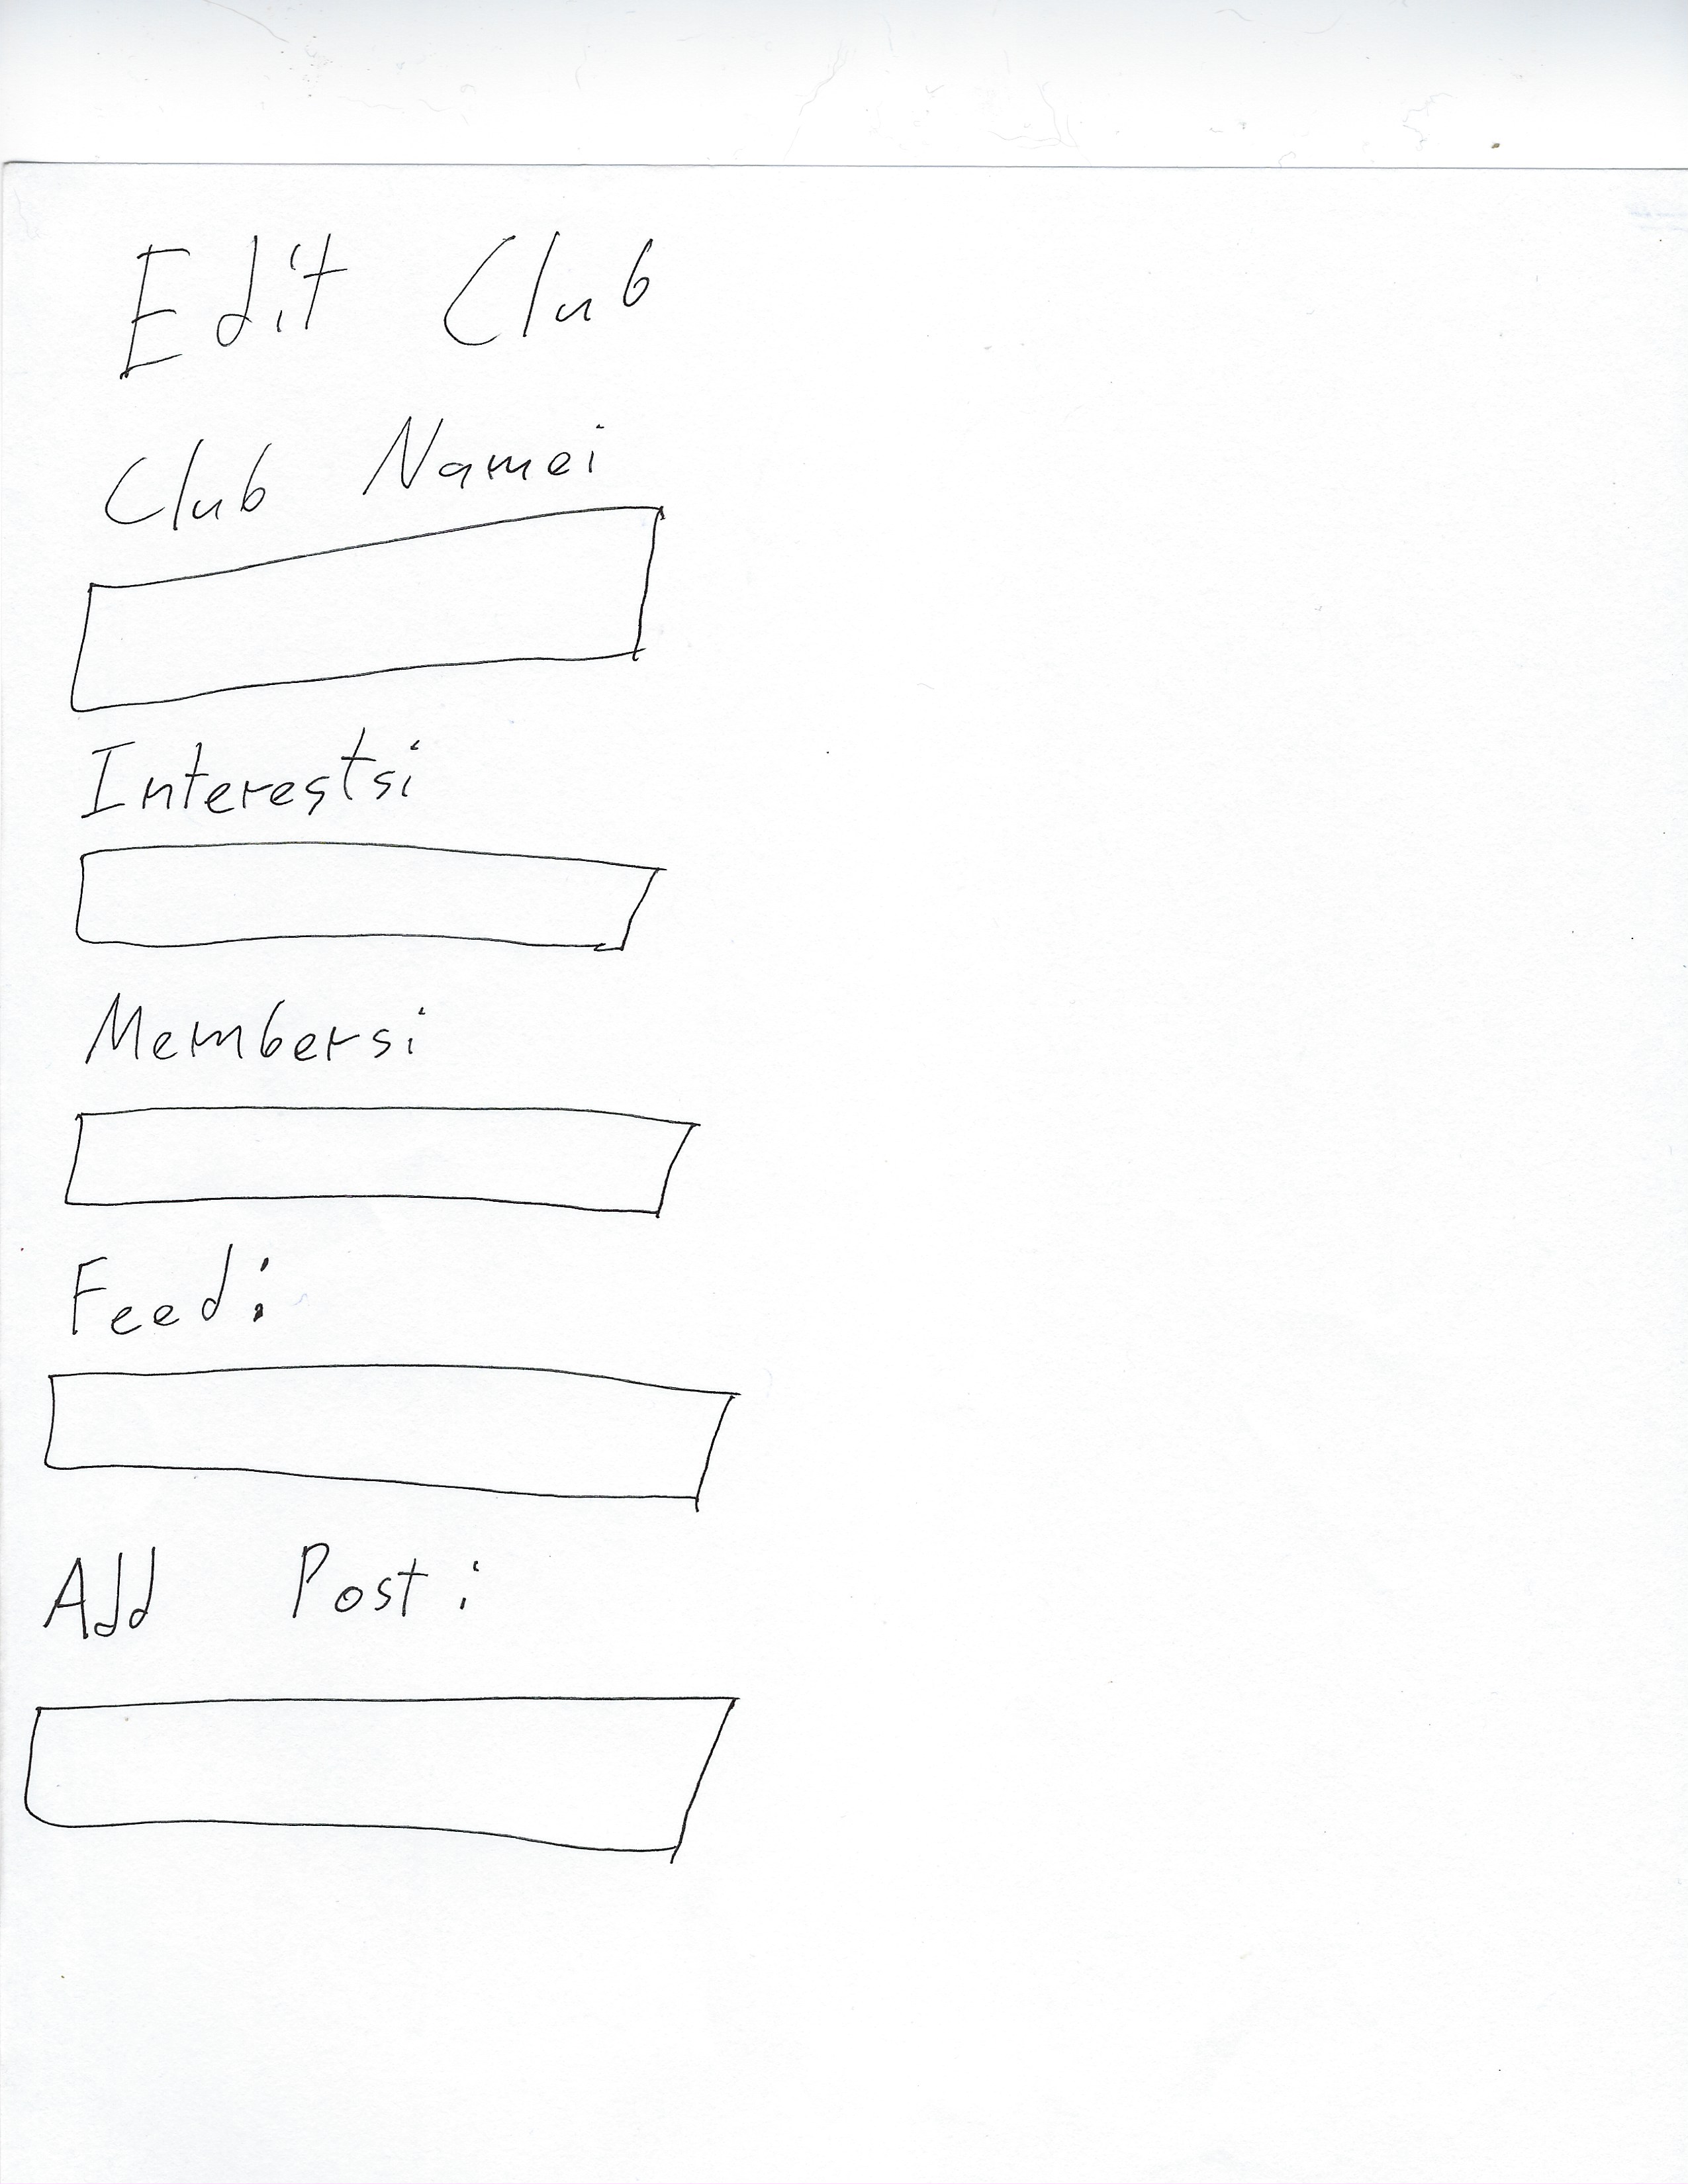 Edit Club
Club Name:
Interests:
Members:
Feed:
Add Post: